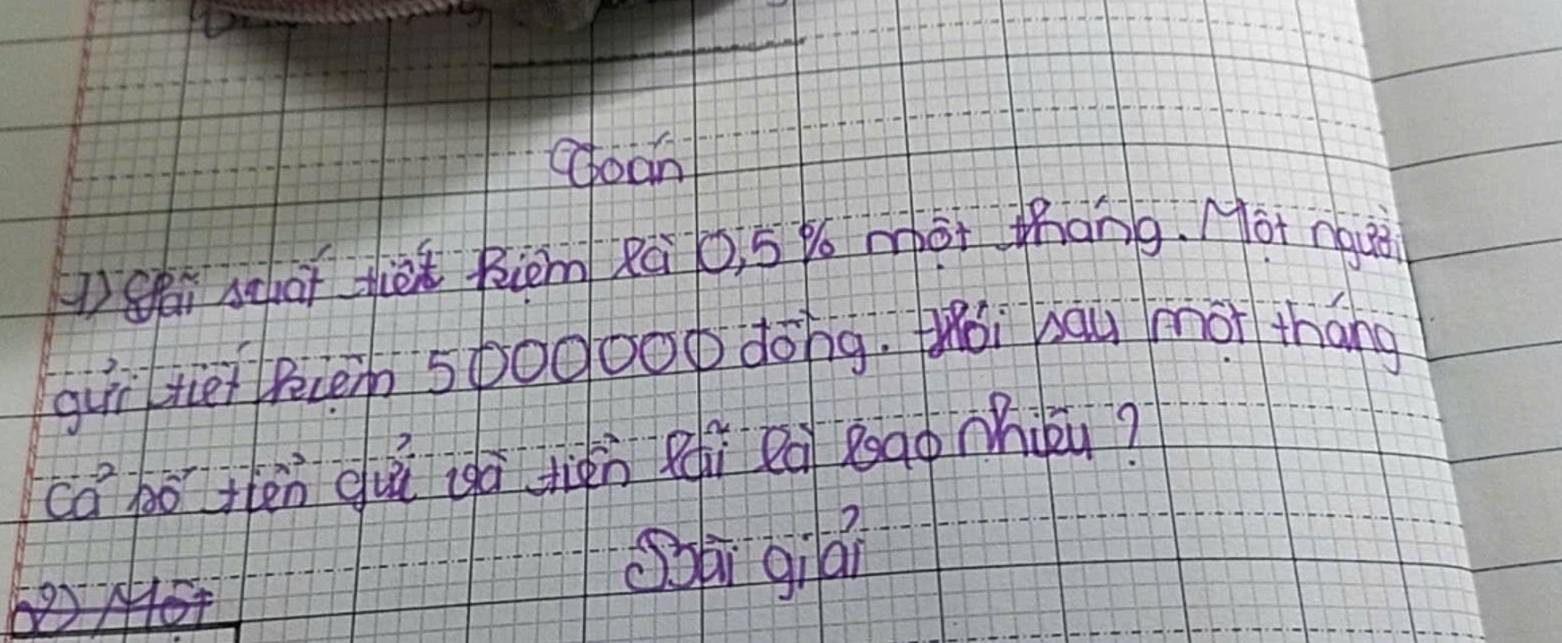 Toán
1) Lãi suất tiết kiệm là 0,5% một tháng. Một người
gửi tiết kiệm 5000000 đồng. Hỏi sau một tháng
cả số tiền gửi và tiền lãi là bao nhiêu?
Bài giải
2) Một